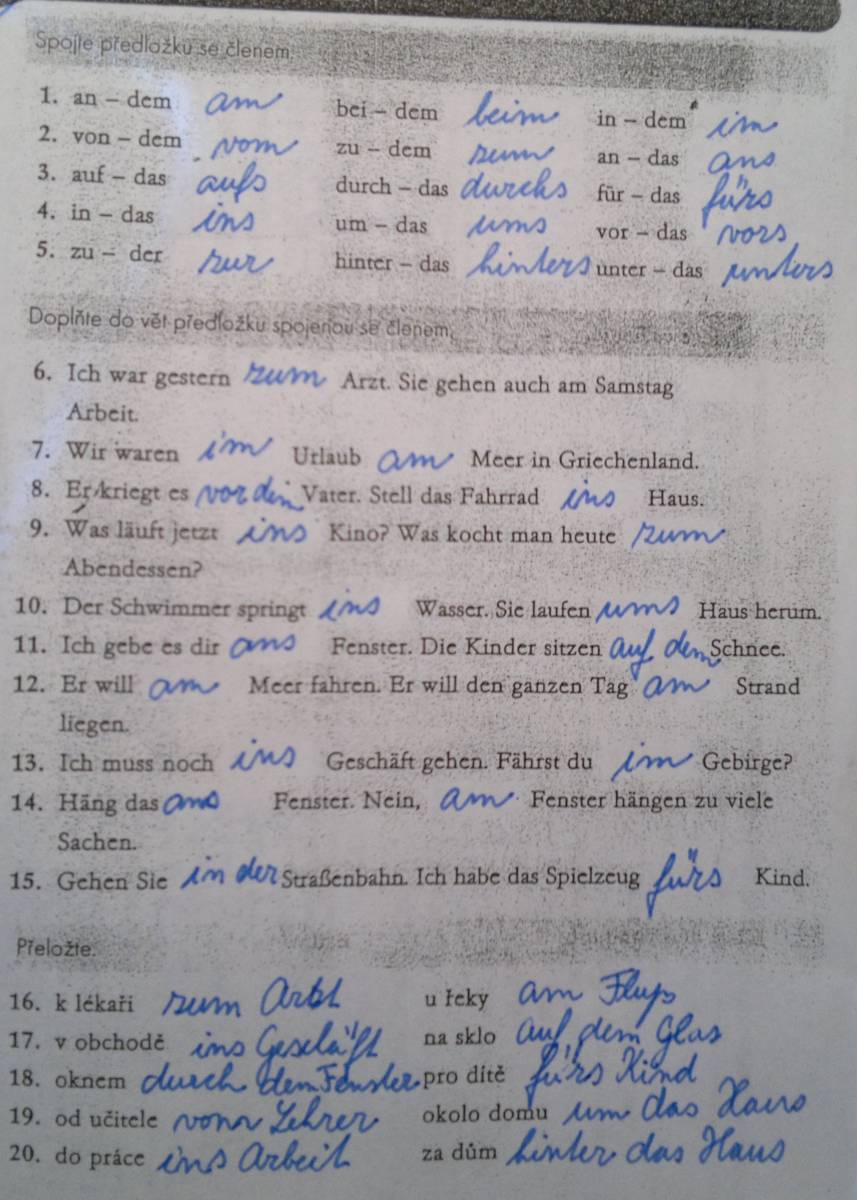 Spojte předložku se členem.
1. an – dem am bei – dem beim in – dem im
2. von – dem vom zu – dem zum an – das ans
3. auf – das aufs durch – das durchs für – das fürs
4. in – das ins um – das ums vor – das vors
5. zu – der zur hinter – das hinters unter – das unters
Doplňte do vět předložku spojenou se členem.
6. Ich war gestern zum Arzt. Sie gehen auch am Samstag
Arbeit.
7. Wir waren im Urlaub am Meer in Griechenland.
8. Er kriegt es vor dem Vater. Stell das Fahrrad ins Haus.
9. Was läuft jetzt ins Kino? Was kocht man heute zum
Abendessen?
10. Der Schwimmer springt ins Wasser. Sie laufen ums Haus herum.
11. Ich gebe es dir ans Fenster. Die Kinder sitzen auf dem Schnee.
12. Er will am Meer fahren. Er will den ganzen Tag am Strand
liegen.
13. Ich muss noch ins Geschäft gehen. Fährst du im Gebirge?
14. Häng das ans Fenster. Nein, am Fenster hängen zu viele
Sachen.
15. Gehen Sie in der Straßenbahn. Ich habe das Spielzeug fürs Kind.
Přeložte.
16. k lékaři zum Arzt u řeky am Fluß
17. v obchodě ins Geschäft na sklo auf dem Glas
18. oknem durch dem Fenster pro dítě fürs Kind
19. od učitele vom Lehrer okolo domu um das Haus
20. do práce ins Arbeit za dům hinter das Haus